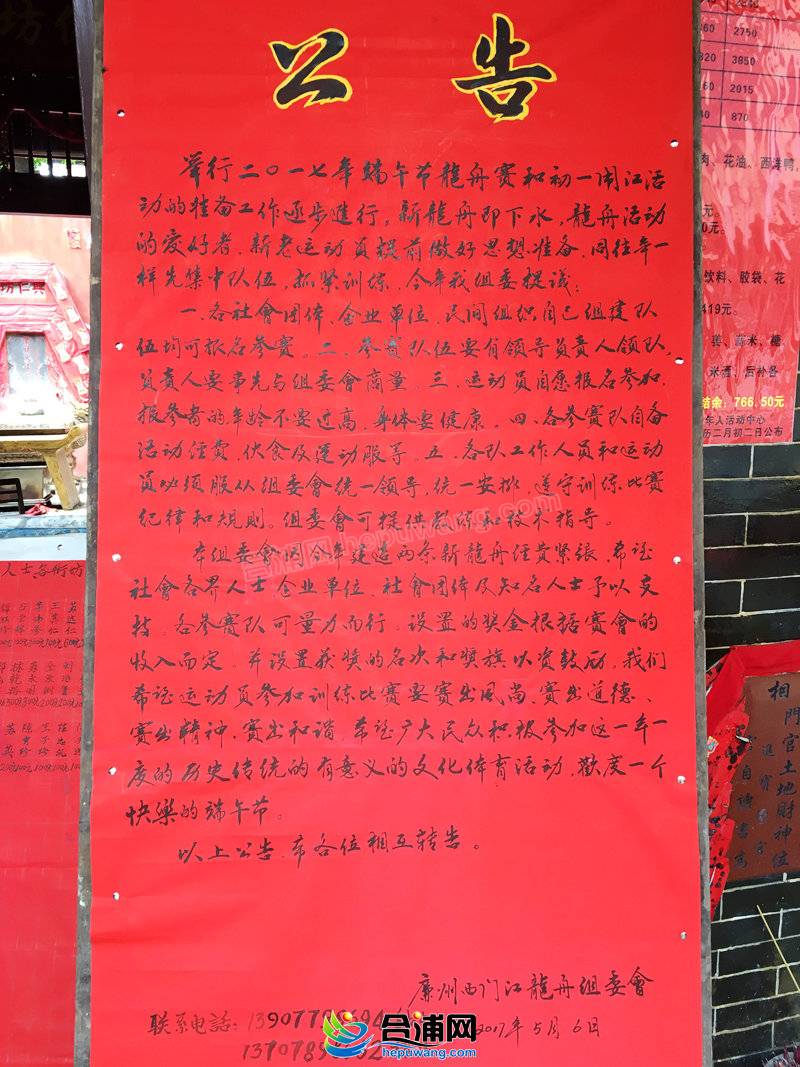 公告
举行二〇一七年端午节龍舟赛和初一闹江活
动的准备工作逐步進行，新龍舟即下水，龍舟活动
的爱好者、新老运动员提前做好思想准备，同往年一
样先集中队伍，抓紧训练，今年我组委提议：
一、各社會团体、企业单位、民间组织自己组建队
伍均可报名参赛。二、参赛队伍要有领导负责人领队，
负责人要事先与组委會商量。三、运动员自愿报名参加，
报参者的年龄不要过高，身体要健康。四、各参赛队自备
活动经费，伙食及运动服等。五、各队工作人员和运动
员必须服从组委會统一领导，统一安排，遵守训练比赛
纪律和规则。组委會可提供教练和技术指导。
本组委會因今年建造两条新龍舟经费紧张，希望
社會各界人士企业单位，社會团体及知名人士予以支
持，各参赛队可量力而行，设置的奖金根据赛會的
收入而定，并设置获奖的名次和奖旗以资鼓励，我们
希望运动员参加训练比赛要赛出风尚，赛出道德、
赛出精神，赛出和谐，希望广大民众积极参加这一年一
度的历史传统的有意义的文化体育活动，歡度一个
快樂的端午节。
以上公告，希各位相互转告。
廉州西门江龍舟组委會
2017年5月6日
联系电话：
合浦网
hepuwang.com
合浦网 hepuwang.com
2750
3850
2015
870
肉、花油、西洋鸭，
饮料、胶袋、花
419元。
蒜米、糖，
米酒、后补各
结余：766.50元
年人活动中心
历二月初二日公布
人士各街坊
相門官土地財神位
進寶
自誠